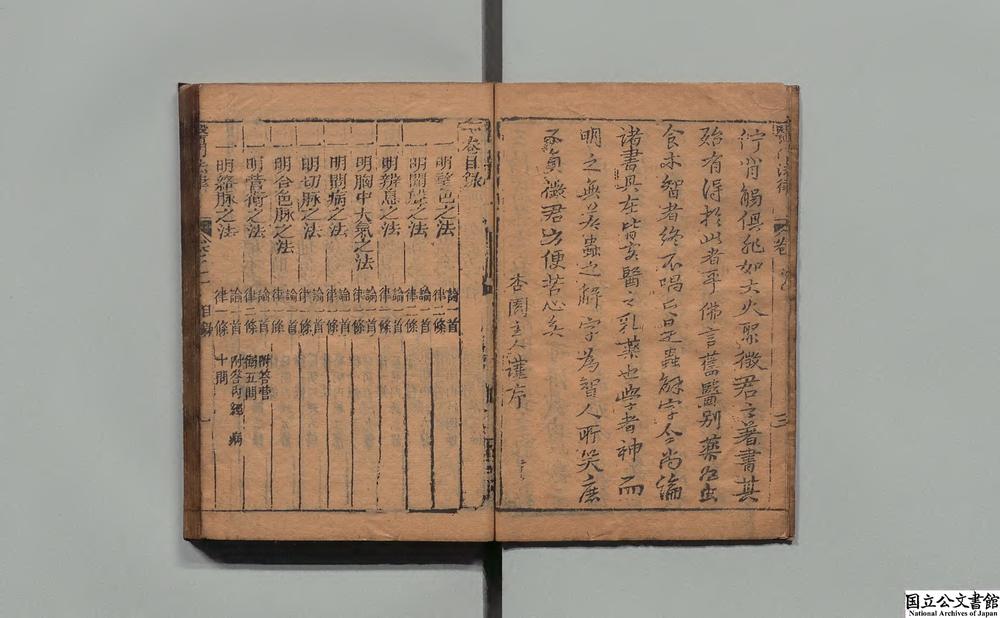 醫門法律 卷 序 三
觸俱非如大火聚徵君之著書其
殆有得於此者乎佛言舊醫別藥如虫
食木智者終不唱言是蟲解字今尚論
諸書具在皆實醫之乳藥也學者神而
明之無若蟲之解字為智人所笑庶
不負徵君方便苦心矣
杏園主人謹序
一卷目錄
一明望色之法 論一首 律二條
一明聞聲之法 論一首 律二條
一明辨息之法 論一首 律一條
一明胸中大氣之法 論一首 律一條
一明問病之法 論一首 律一條
一明切脉之法 論一首 律一條
一明合色脉之法 論一首 律一條
一明營衛之法 論一首 律一條 附答營衛五問
一明絡脉之法 論一首 律一條 附答內經 病十問
醫門法律 卷之一 目錄
国立公文書館
National Archives of Japan